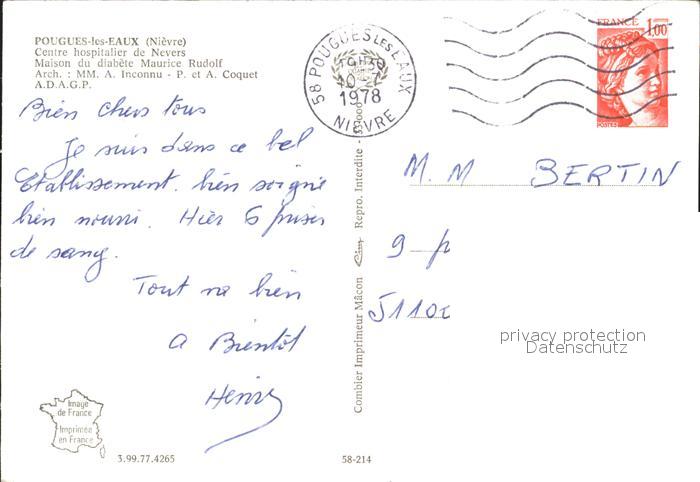 POUGUES-les-EAUX (Nièvre)
Centre hospitalier de Nevers
Maison du diabète Maurice Rudolf
Arch. : MM. A. Inconnu - P. et A. Coquet
A.D.A.G.P.
Bien chers tous
Je suis dans ce bel
Etablissement. bien soigné
bien nourri. Hier 6 prises
de sang.
Tout va bien
A Bientôt
Henri
Image
de France
Imprimée
en France
3.99.77.4265
58-214
Combier Imprimeur Mâcon Cim Repro. Interdite -
58 POUGUES LES EAUX
1978
NIEVRE
FRANCE 1,00
POSTES
M. M BERTIN
9 p
privacy protection
Datenschutz